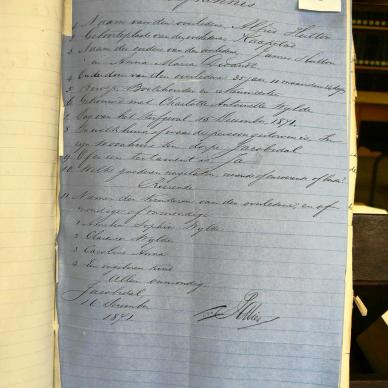 1. Naam van den overledene Alfred Hutton
2. Geboorteplaats van den overledene Kaapstad
3. Naam der ouders van den overledene James Hutton
en Anna Maria
4. Ouderdom van den overledene 35 jaar 11 maanden
5. Beroep Boekhouder en
6. Gehuwd met Charlotte Antoinette Wylde
7. Dag van het 15 December 1871
8. In welk huis of waar de persoon gestorven is, In
zijn woonhuis ten dorpe Jacobsdal
9. Of er een testament is? Ja
10. Welke goederen nagelaten, roerende of onroerende of beide?
Roerende
11. Namen der kinderen van den overledene, en of
mondige of onmondige
1 Sophia Wylde
2 Wylde
3 Caroline Anna
4 Een ongeboren kind
Allen onmondig
Jacobsdal
16 December
1871